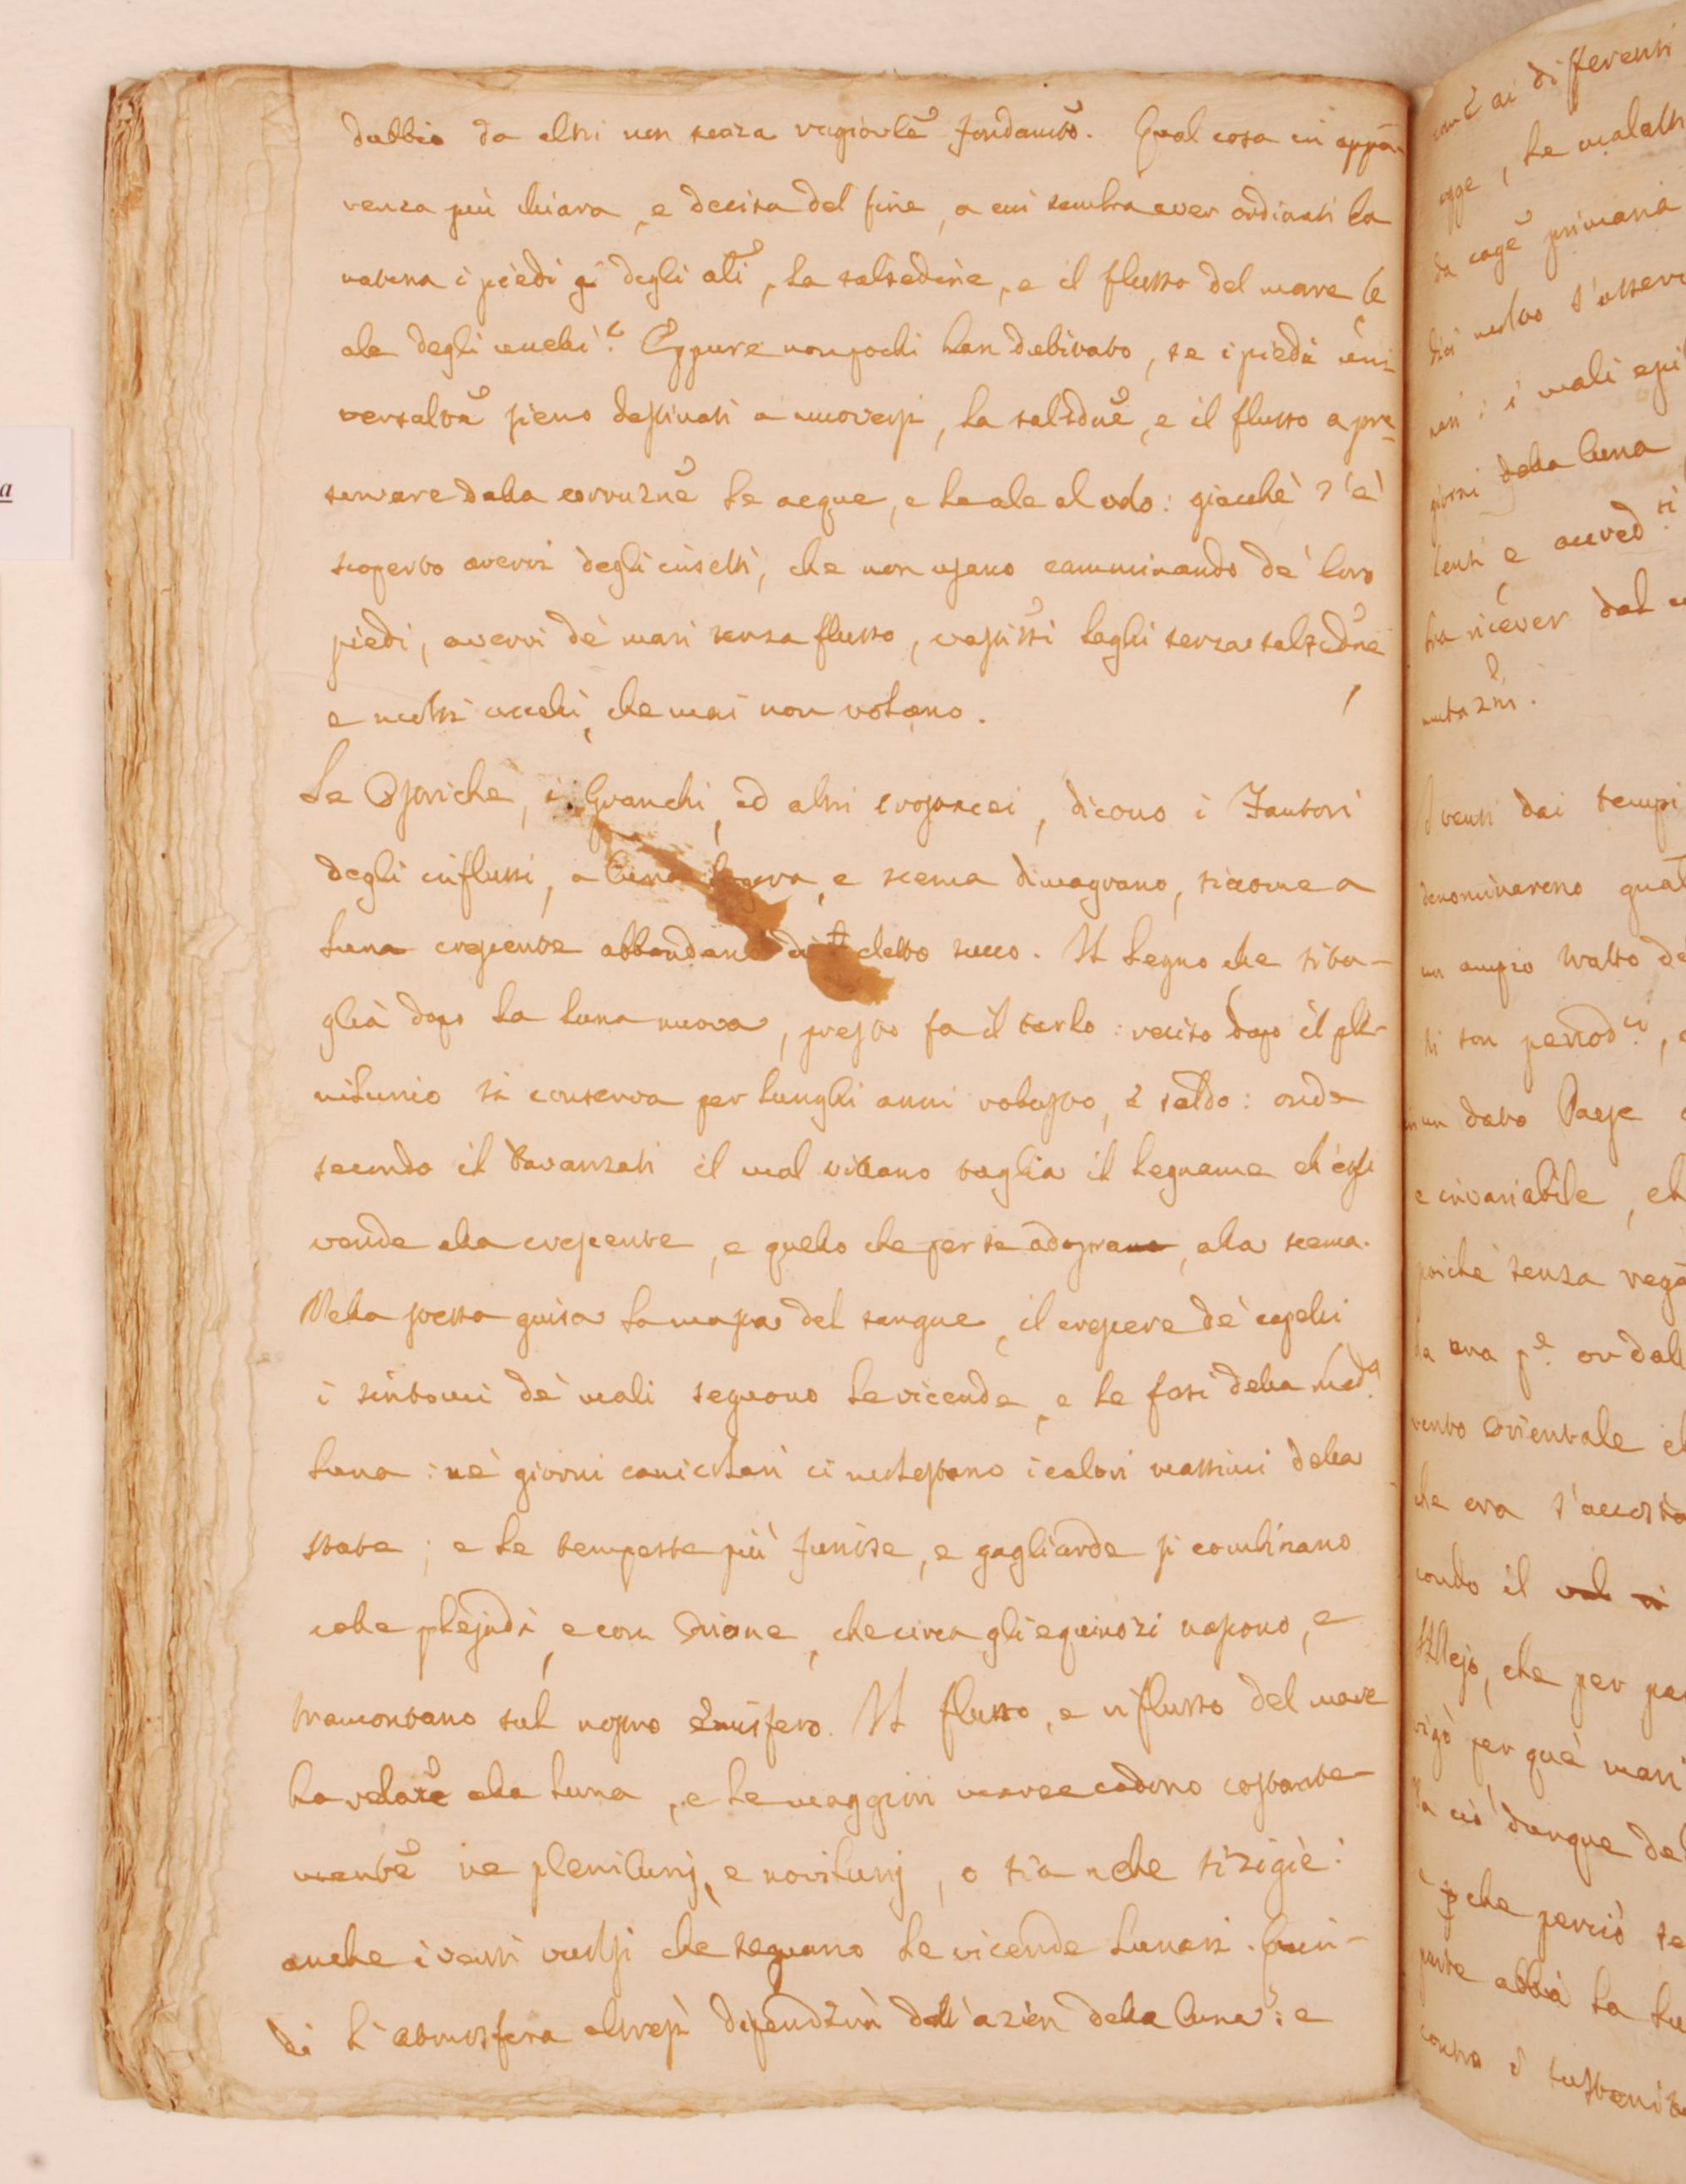 dubbio da altri non senza ragiovlẽ fondamtõ. Qual cosa in appa-
renza più chiara, e decisa del fine, a cui sembra aver ordinati la
natura i piedi degli ali, la salsedine, e il flusso del mare le
ale degli uccelli? Eppure non pochi han dubitato, se i piedi uni
versaltẽ sieno destinati a muoversi, la salsdnẽ, e il flusso a pre-
servare dalla corruznẽ le acque, e le ale al volo: giacchè s'è
scoperto avervi degli insetti, che non usano camminando de' loro
piedi, avervi de' mari senza flusso, vastissi laghi senza salsednẽ
e molti uccelli, che mai non volano.
Le Ostriche, i Granchi, ed altri crostacei, dicono i Fautori
degli influssi, a luna e scema dimagrano, siccome a
Luna crescente abbondano di eletto succo. Il legno che si ta-
glia dopo la luna nuova, presto fa il tarlo: reciso dopo il ple-
nilunio si conserva per lunghi anni robusto, e saldo: onde
secondo il Davanzati il mal villano taglia il legname ch'egli
vende alla crescente, e quello che per se adoprano, alla scema.
Nella stessa guisa la massa del sangue, il crescere de' capelli
i sintomi de' mali seguono le vicende, e le fasi della medª
Luna: ne' giorni canicolari ci molestano i calori massimi della
state; e le tempeste più furiose, e gagliarde si combinano
colle plejadi, e con Orione, che circa gli equinozi nascono, e
tramontano sul nostro Emisfero. Il flusso, e riflusso del mare
ha relazẽ alla luna, e le maggiori maree cadono costante-
mentẽ ne plenilunj, e novilunj, o sia nelle sizigie:
anche i venti vuolsi che seguano le vicende lunari. Quin-
di l'atmosfera altresì dipenderà dall'azion della luna: e
ai differenti
, le malatti
da cagẽ primaria
molto s'osserv
: i mali epi
giorni della luna
lenti e accred.ti
tra ricever dal
mutazni.
I venti dai tempi
denominarono quat
un ampio tratto de
ti son period.ci,
in un dato Paese
e invariabile, ch
poichè senza rego
da ora or dall
vento orientale ch
che ora s'accosta
condo il
che per
per que' mari
Da ciò dunque de
che perciò se
parte abbia la lu
contro e sustoni